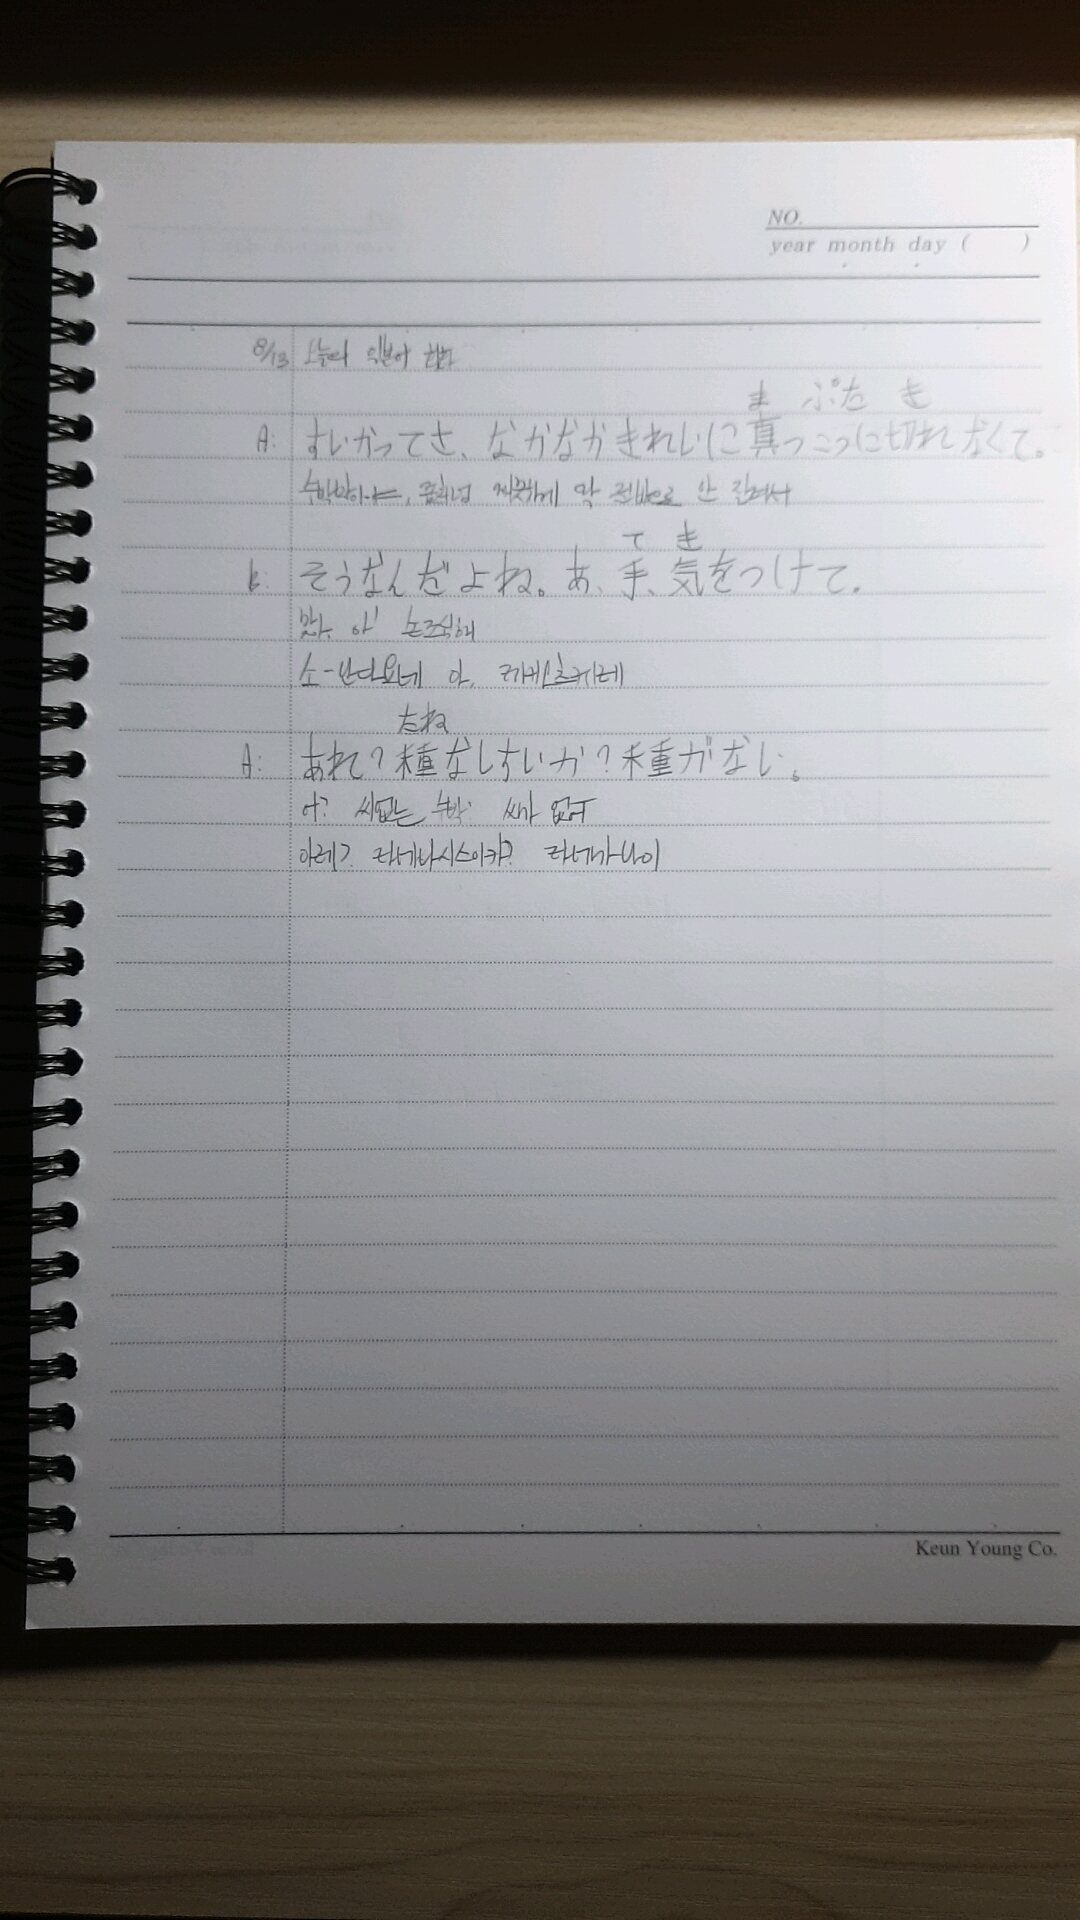 NO.
year month day ( )
8/13 오늘의 일본어 회화
ま ぷた き
A: すいかってさ、なかなかきれいに真っこつに切れなくて。
수박말이야, 깨끗하게 딱 절반으로 안 잘려서
て き
B: そうなんだよね。あ、手、気をつけて。
맞아. 아! 손조심해
소-난다요네 아, 테키츠케테
たね
A: あれ?種なしすいか?種がない。
어? 씨없는 수박 씨가 없어
아레? 타네나시스이카? 타네가나이
Keun Young Co.